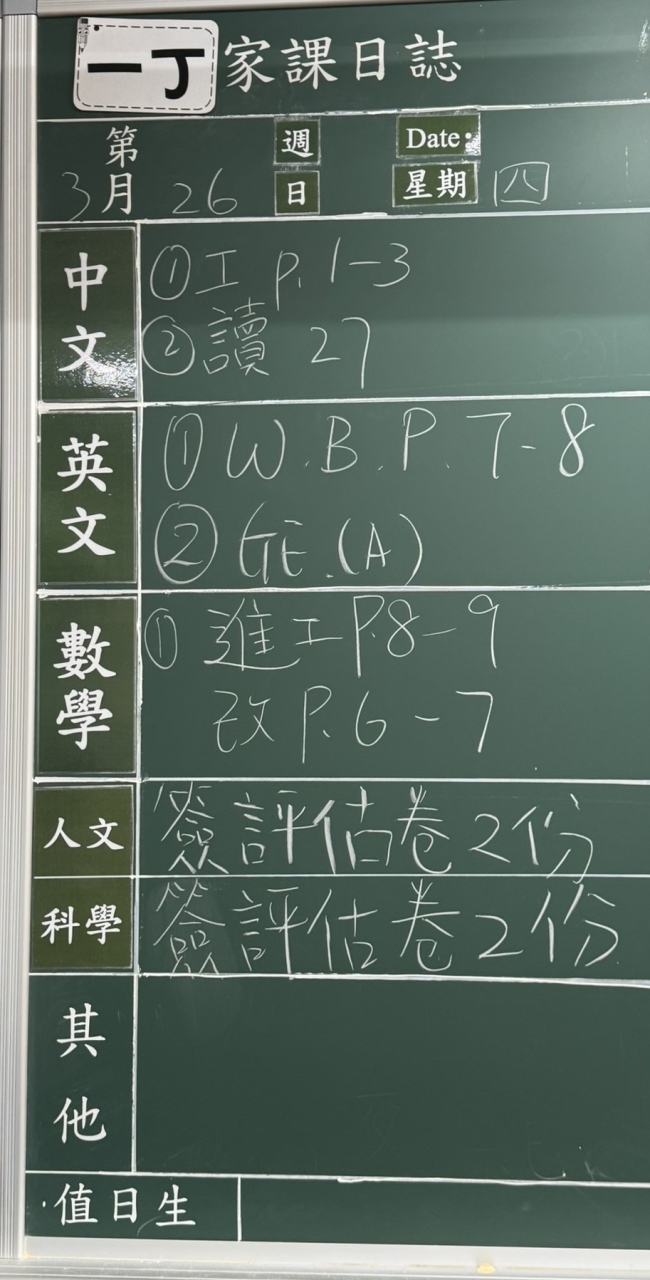 一丁 家課日誌
第 週 Date:
3月 26 日 星期 四
中文 ①工 p. 1-3
②讀 27
英文 ①W.B.P. 7-8
②GE.(A)
數學 ① 進工P.8-9
改P.6-7
人文 簽評估卷2份
科學 簽評估卷2份
其他
值日生